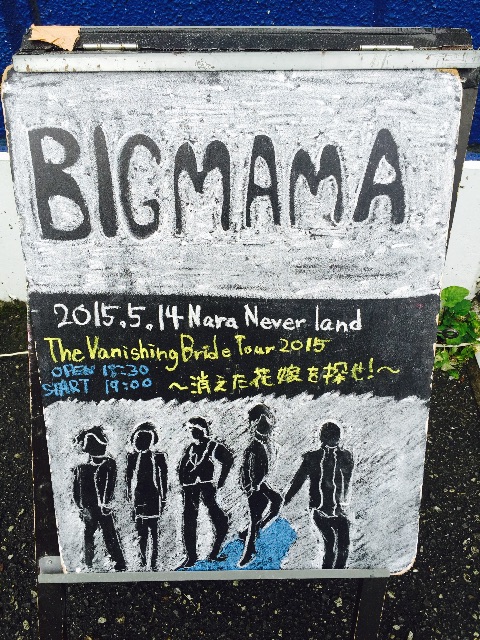 BIGMAMA
2015.5.14 Nara Never land
The Vanishing Bride Tour 2015
OPEN 18:30
START 19:00
〜消えた花嫁を探せ!〜